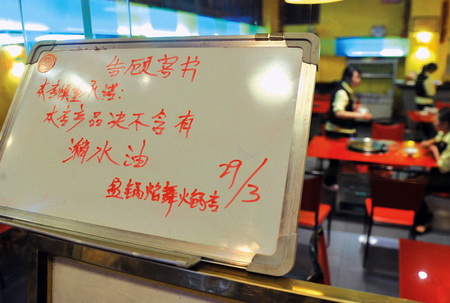 告顾客书
本店郑重承诺:
本店产品决不含有
潲水油
29/3
盈锅焰舞火锅店